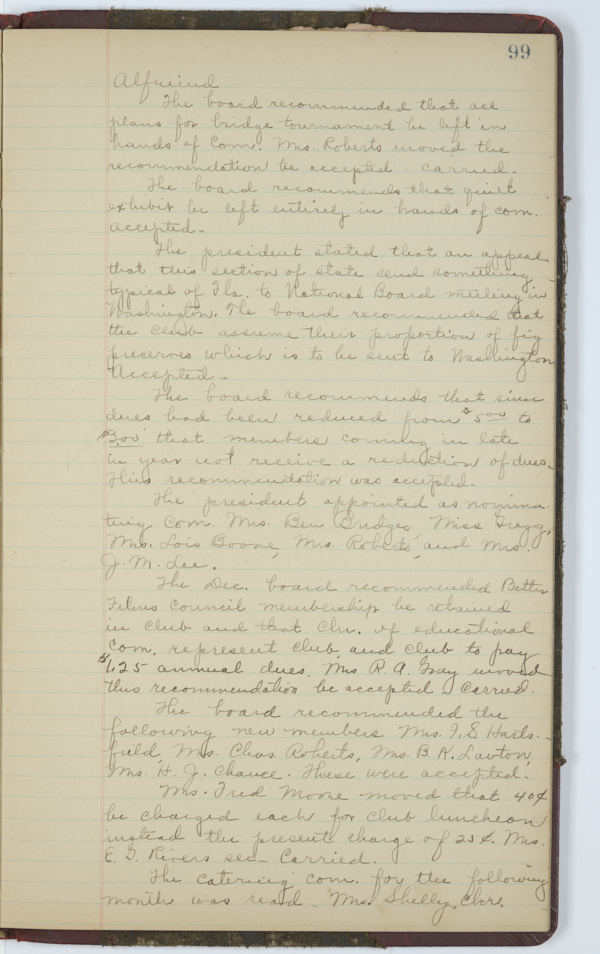 99
Alfriend
The board recommended that all
plans for bridge tournament be left in
hands of Com. Mrs. Roberts moved the
recommendation be accepted - carried.
The board recommends that quilt
exhibit be left entirely in hands of com.
accepted -
The president stated that an appeal
that this section of state send something
typical of Fla. to National Board meeting in
Washington. The board recommended that
the club assume their proportion of fig
preserves which is to be sent to Washington
Accepted -
The board recommends that since
dues had been reduced from $5.00 to
$3.00 that members coming in late
in year not receive a reduction of dues.
This recommendation was accepted.
The president appointed as nomina-
ting Com. Mrs. Ben Bridges, Miss Gregg,
Mrs. Lois Boone, Mrs. Roberts, and Mrs.
J. M. Lee.
The Dec. board recommended Better
Films Council membership be retained
in club and that Chr. of educational
Com. represent club and club to pay
$1.25 annual dues. Mrs R. A. Gray moved
this recommendation be accepted, Carried.
The board recommended the
following new members Mrs. F. S Harts-
field, Mrs. Chas. Roberts, Mrs. B. K. Lawton,
Mrs. H. J. Chance. These were accepted.
Mrs. Fred Moore moved that 40¢
be charged each for club luncheon
instead the present charge of 25¢. Mrs.
E. G. Rivers sec - Carried.
The catering com. for the following
month was read - Mrs. Shelley, Chr.